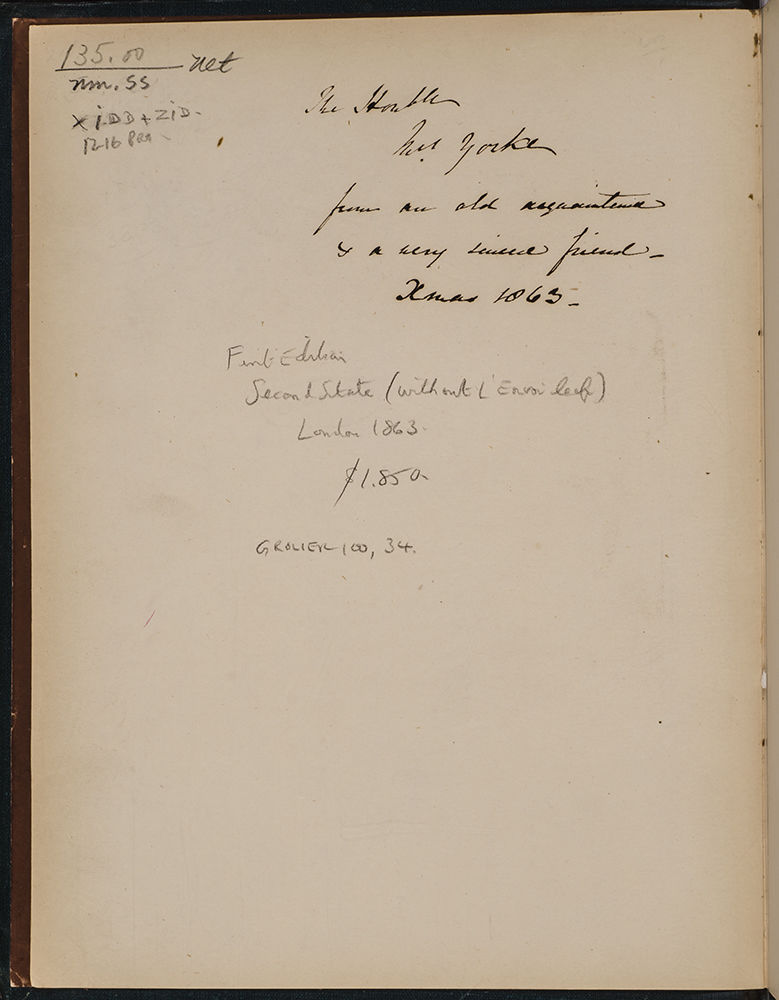 135.00 net
nm.ss
X i.DD + ZiD.
12-16
The Honble
Mrs Yorke
from an old acquaintance
& a very sincere friend -
Xmas 1863 -
First Edition
Second State (without L'Envoi leaf)
London 1863.
$1.850-
GROLIER 100, 34.